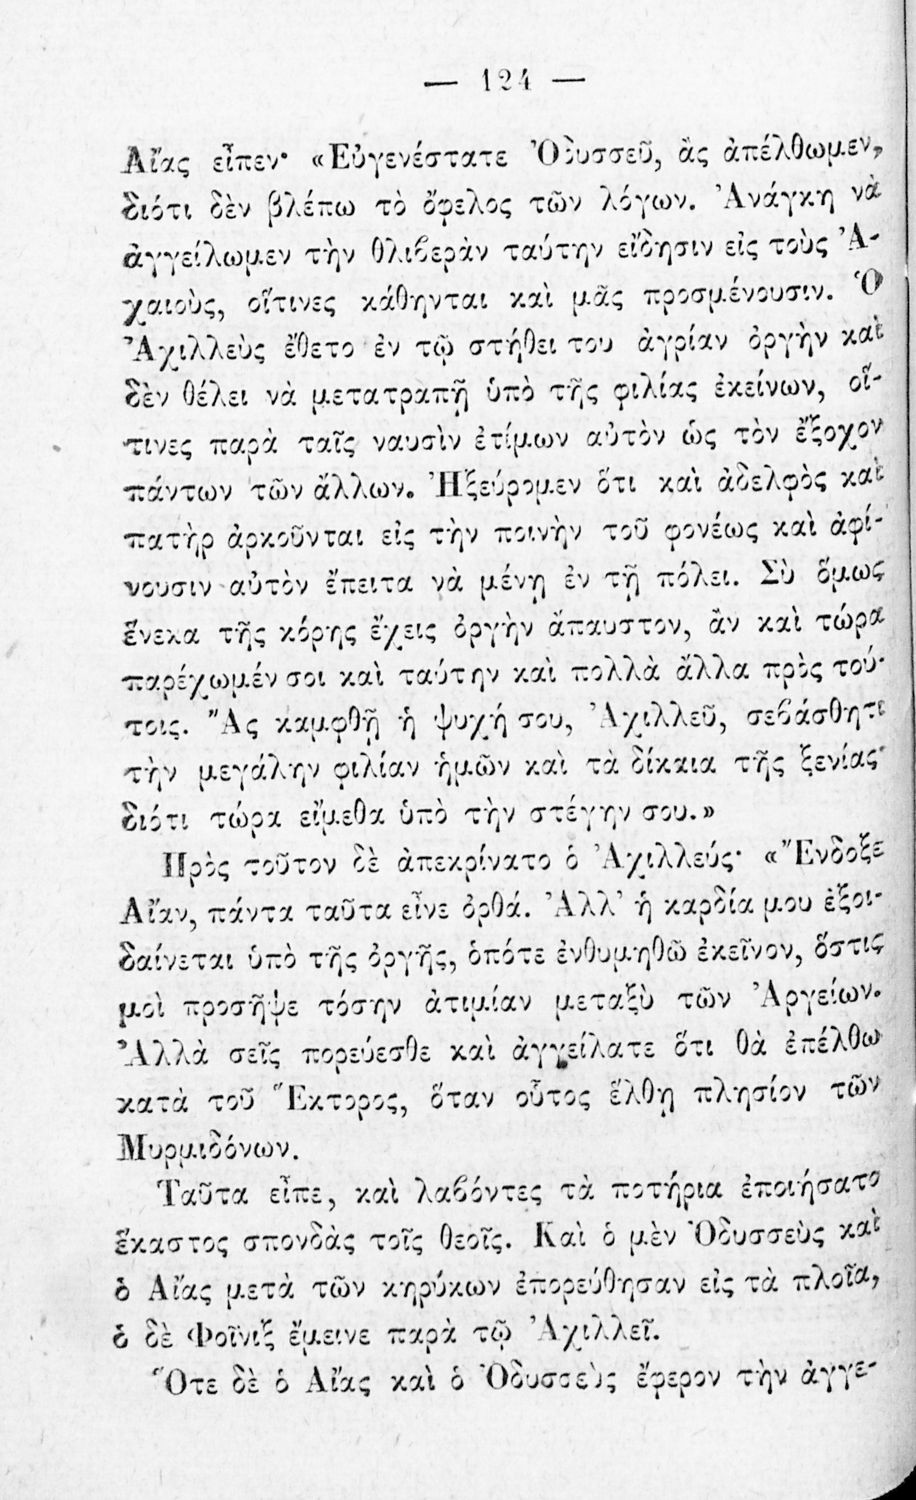 — 124 —
Αἴας εἶπεν· «Εὐγενέστατε Ὀδυσσεῦ, ἂς ἀπέλθωμεν,
διότι δὲν βλέπω τὸ ὄφελος τῶν λόγων. Ἀνάγκη νὰ
ἀγγείλωμεν τὴν θλιβερὰν ταύτην εἴδησιν εἰς τοὺς Ἀ-
χαιοὺς, οἵτινες κάθηνται καὶ μᾶς προσμένουσιν. Ὁ
Ἀχιλλεὺς ἔθετο ἐν τῷ στήθει του ἀγρίαν ὀργὴν καὶ
δὲν θέλει νὰ μετατραπῇ ὑπὸ τῆς φιλίας ἐκείνων, οἵ-
τινες παρὰ ταῖς ναυσὶν ἐτίμων αὐτὸν ὡς τὸν ἔξοχον
πάντων τῶν ἄλλων. Ἠξεύρομεν ὅτι καὶ ἀδελφὸς καὶ
πατὴρ ἀρκοῦνται εἰς τὴν ποινὴν τοῦ φονέως καὶ ἀφί-
νουσιν αὐτὸν ἔπειτα νὰ μένῃ ἐν τῇ πόλει. Σὺ ὅμως
ἕνεκα τῆς κόρης ἔχεις ὀργὴν ἄπαυστον, ἂν καὶ τώρα
παρέχωμέν σοι καὶ ταύτην καὶ πολλὰ ἄλλα πρὸς τού-
τοις. Ἂς καμφθῇ ἡ ψυχή σου, Ἀχιλλεῦ, σεβάσθητι
τὴν μεγάλην φιλίαν ἡμῶν καὶ τὰ δίκαια τῆς ξενίας·
διότι τώρα εἴμεθα ὑπὸ τὴν στέγην σου.»
Πρὸς τοῦτον δὲ ἀπεκρίνατο ὁ Ἀχιλλεύς· «Ἔνδοξε
Αἴαν, πάντα ταῦτα εἶνε ὀρθά. Ἀλλ' ἡ καρδία μου ἐξοι-
δαίνεται ὑπὸ τῆς ὀργῆς, ὁπότε ἐνθυμηθῶ ἐκεῖνον, ὅστις
μοὶ προσῆψε τόσην ἀτιμίαν μεταξὺ τῶν Ἀργείων.
Ἀλλὰ σεῖς πορεύεσθε καὶ ἀγγείλατε ὅτι θὰ ἐπέλθω
κατὰ τοῦ Ἕκτορος, ὅταν οὗτος ἔλθῃ πλησίον τῶν
Μυρμιδόνων.
Ταῦτα εἶπε, καὶ λαβόντες τὰ ποτήρια ἐποιήσατο
ἕκαστος σπονδὰς τοῖς θεοῖς. Καὶ ὁ μὲν Ὀδυσσεὺς καὶ
ὁ Αἴας μετὰ τῶν κηρύκων ἐπορεύθησαν εἰς τὰ πλοῖα,
ὁ δὲ Φοῖνιξ ἔμεινε παρὰ τῷ Ἀχιλλεῖ.
Ὅτε δὲ ὁ Αἴας καὶ ὁ Ὀδυσσεὺς ἔφερον τὴν ἀγγε-